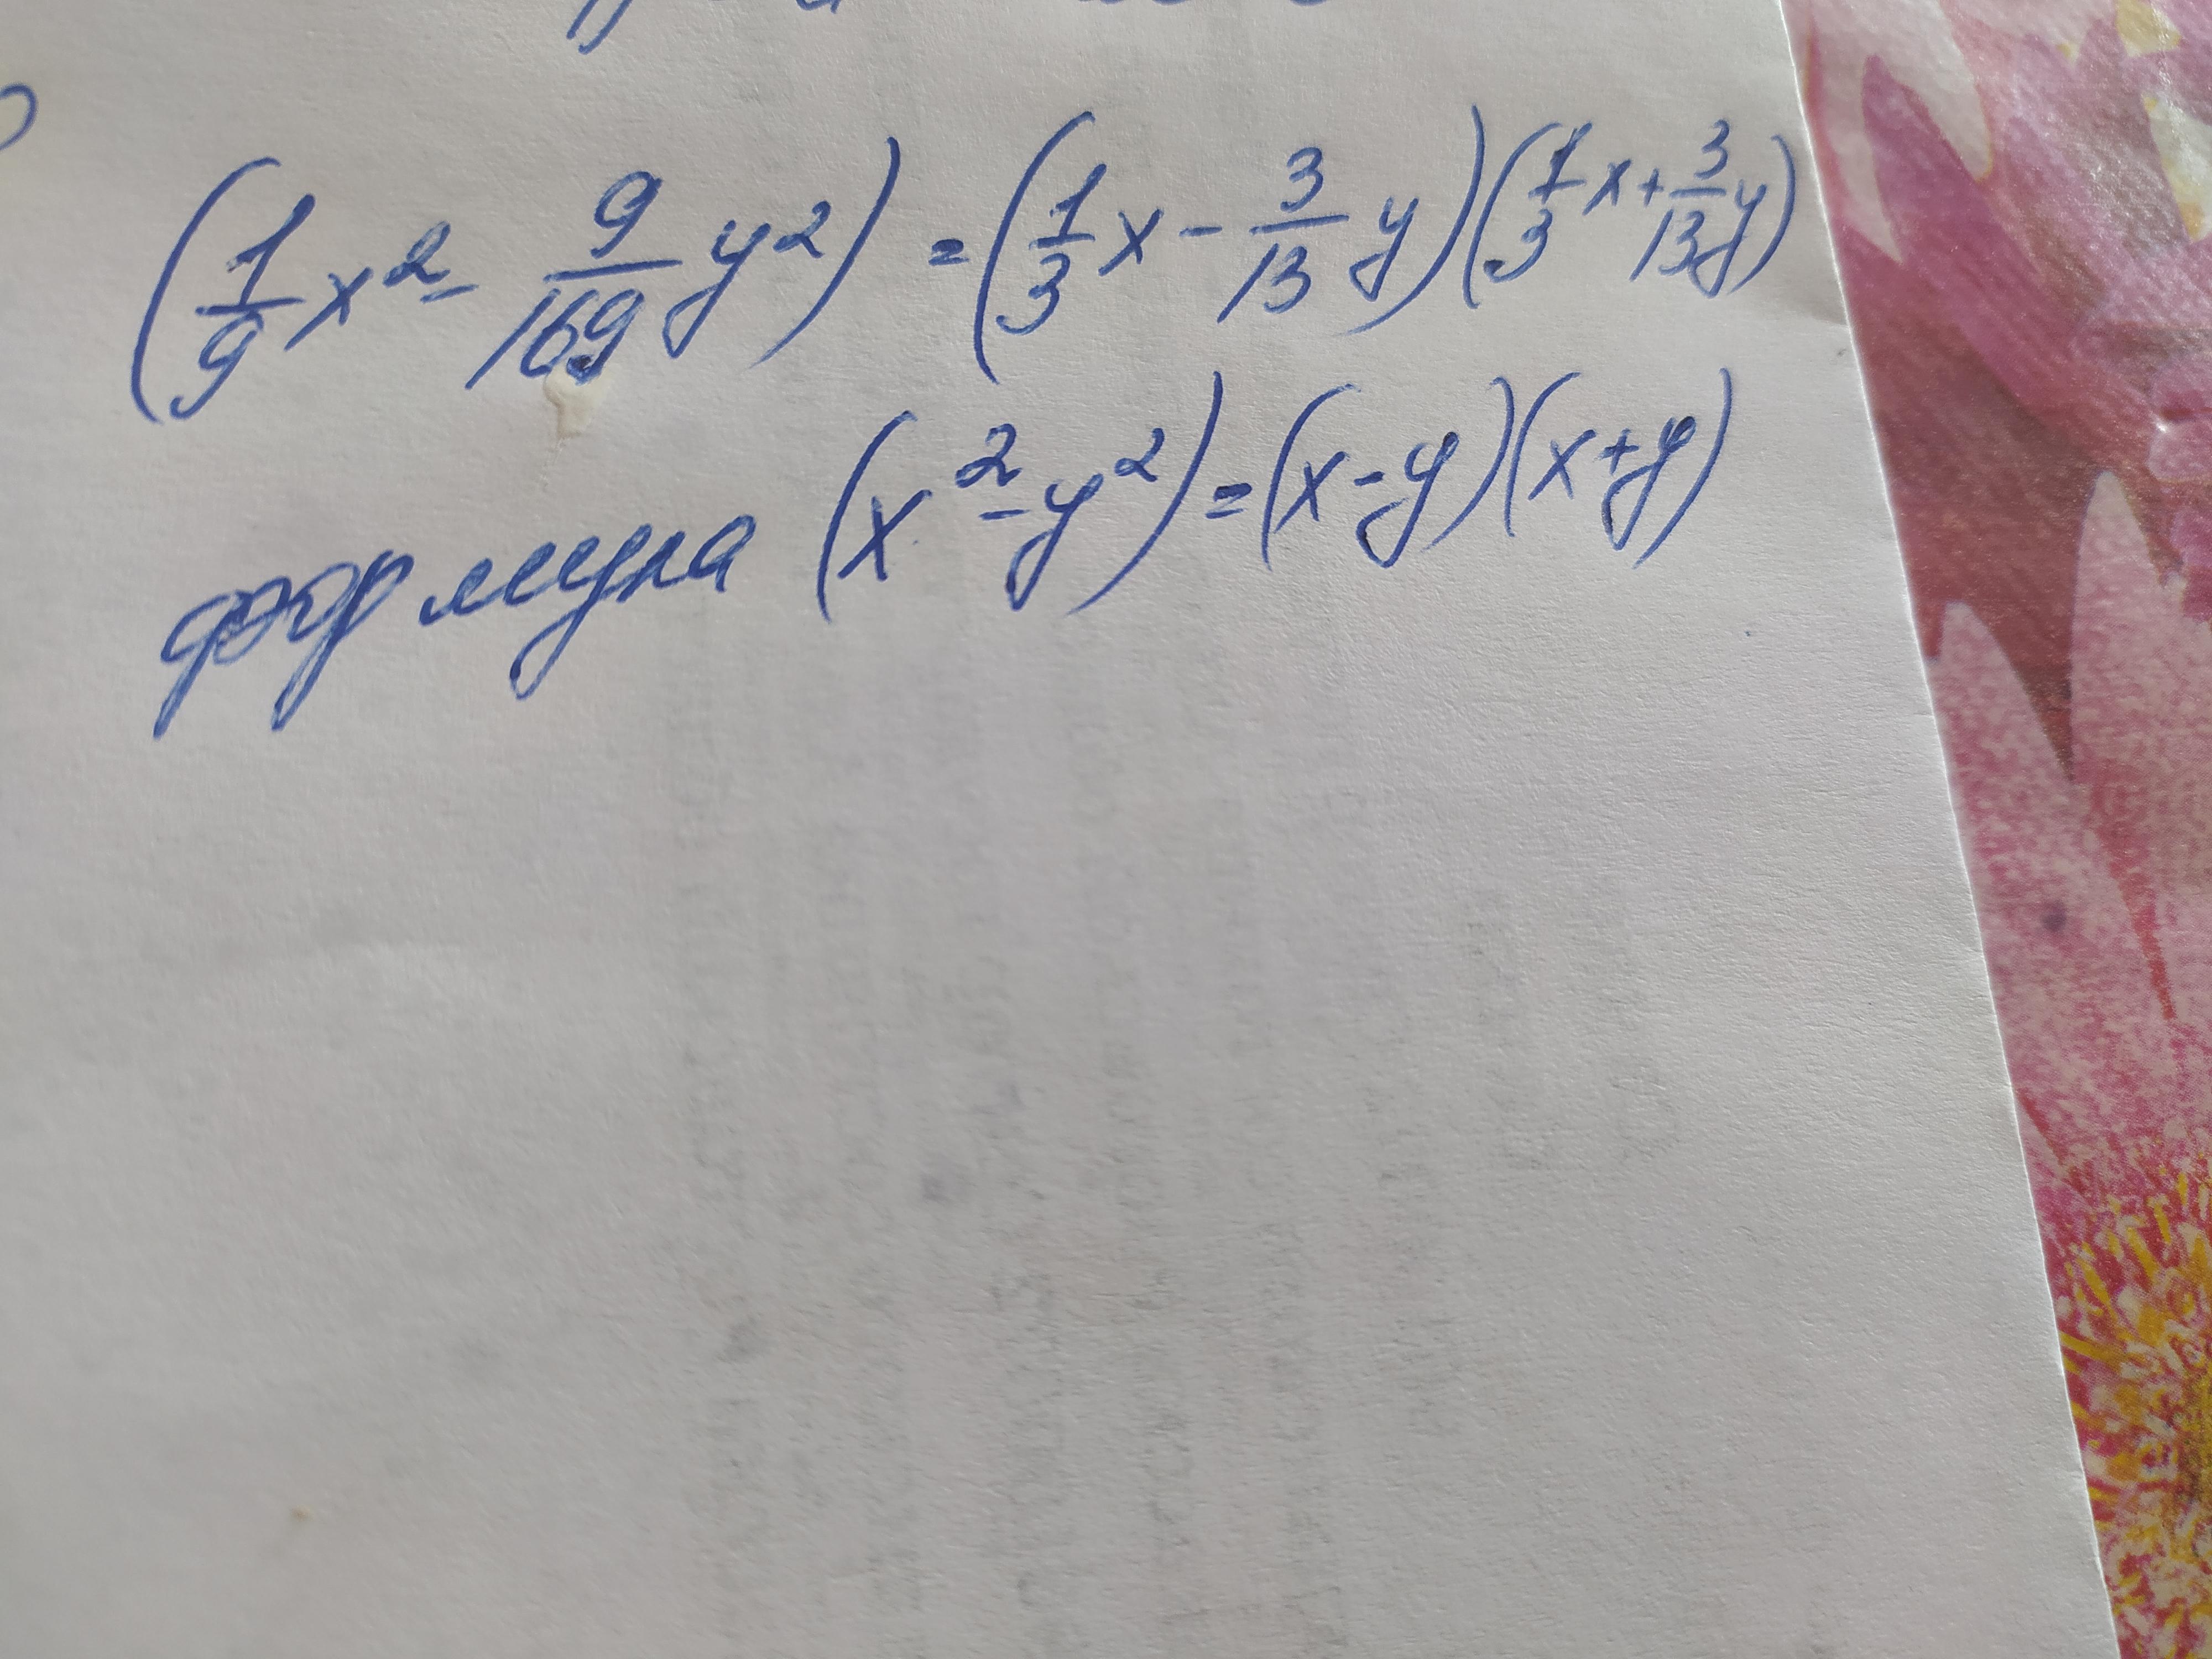 (1/9 x² - 9/169 y²) = (1/3 x - 3/13 y)(1/3 x + 3/13 y)
формула (x² - y²) = (x - y)(x + y)